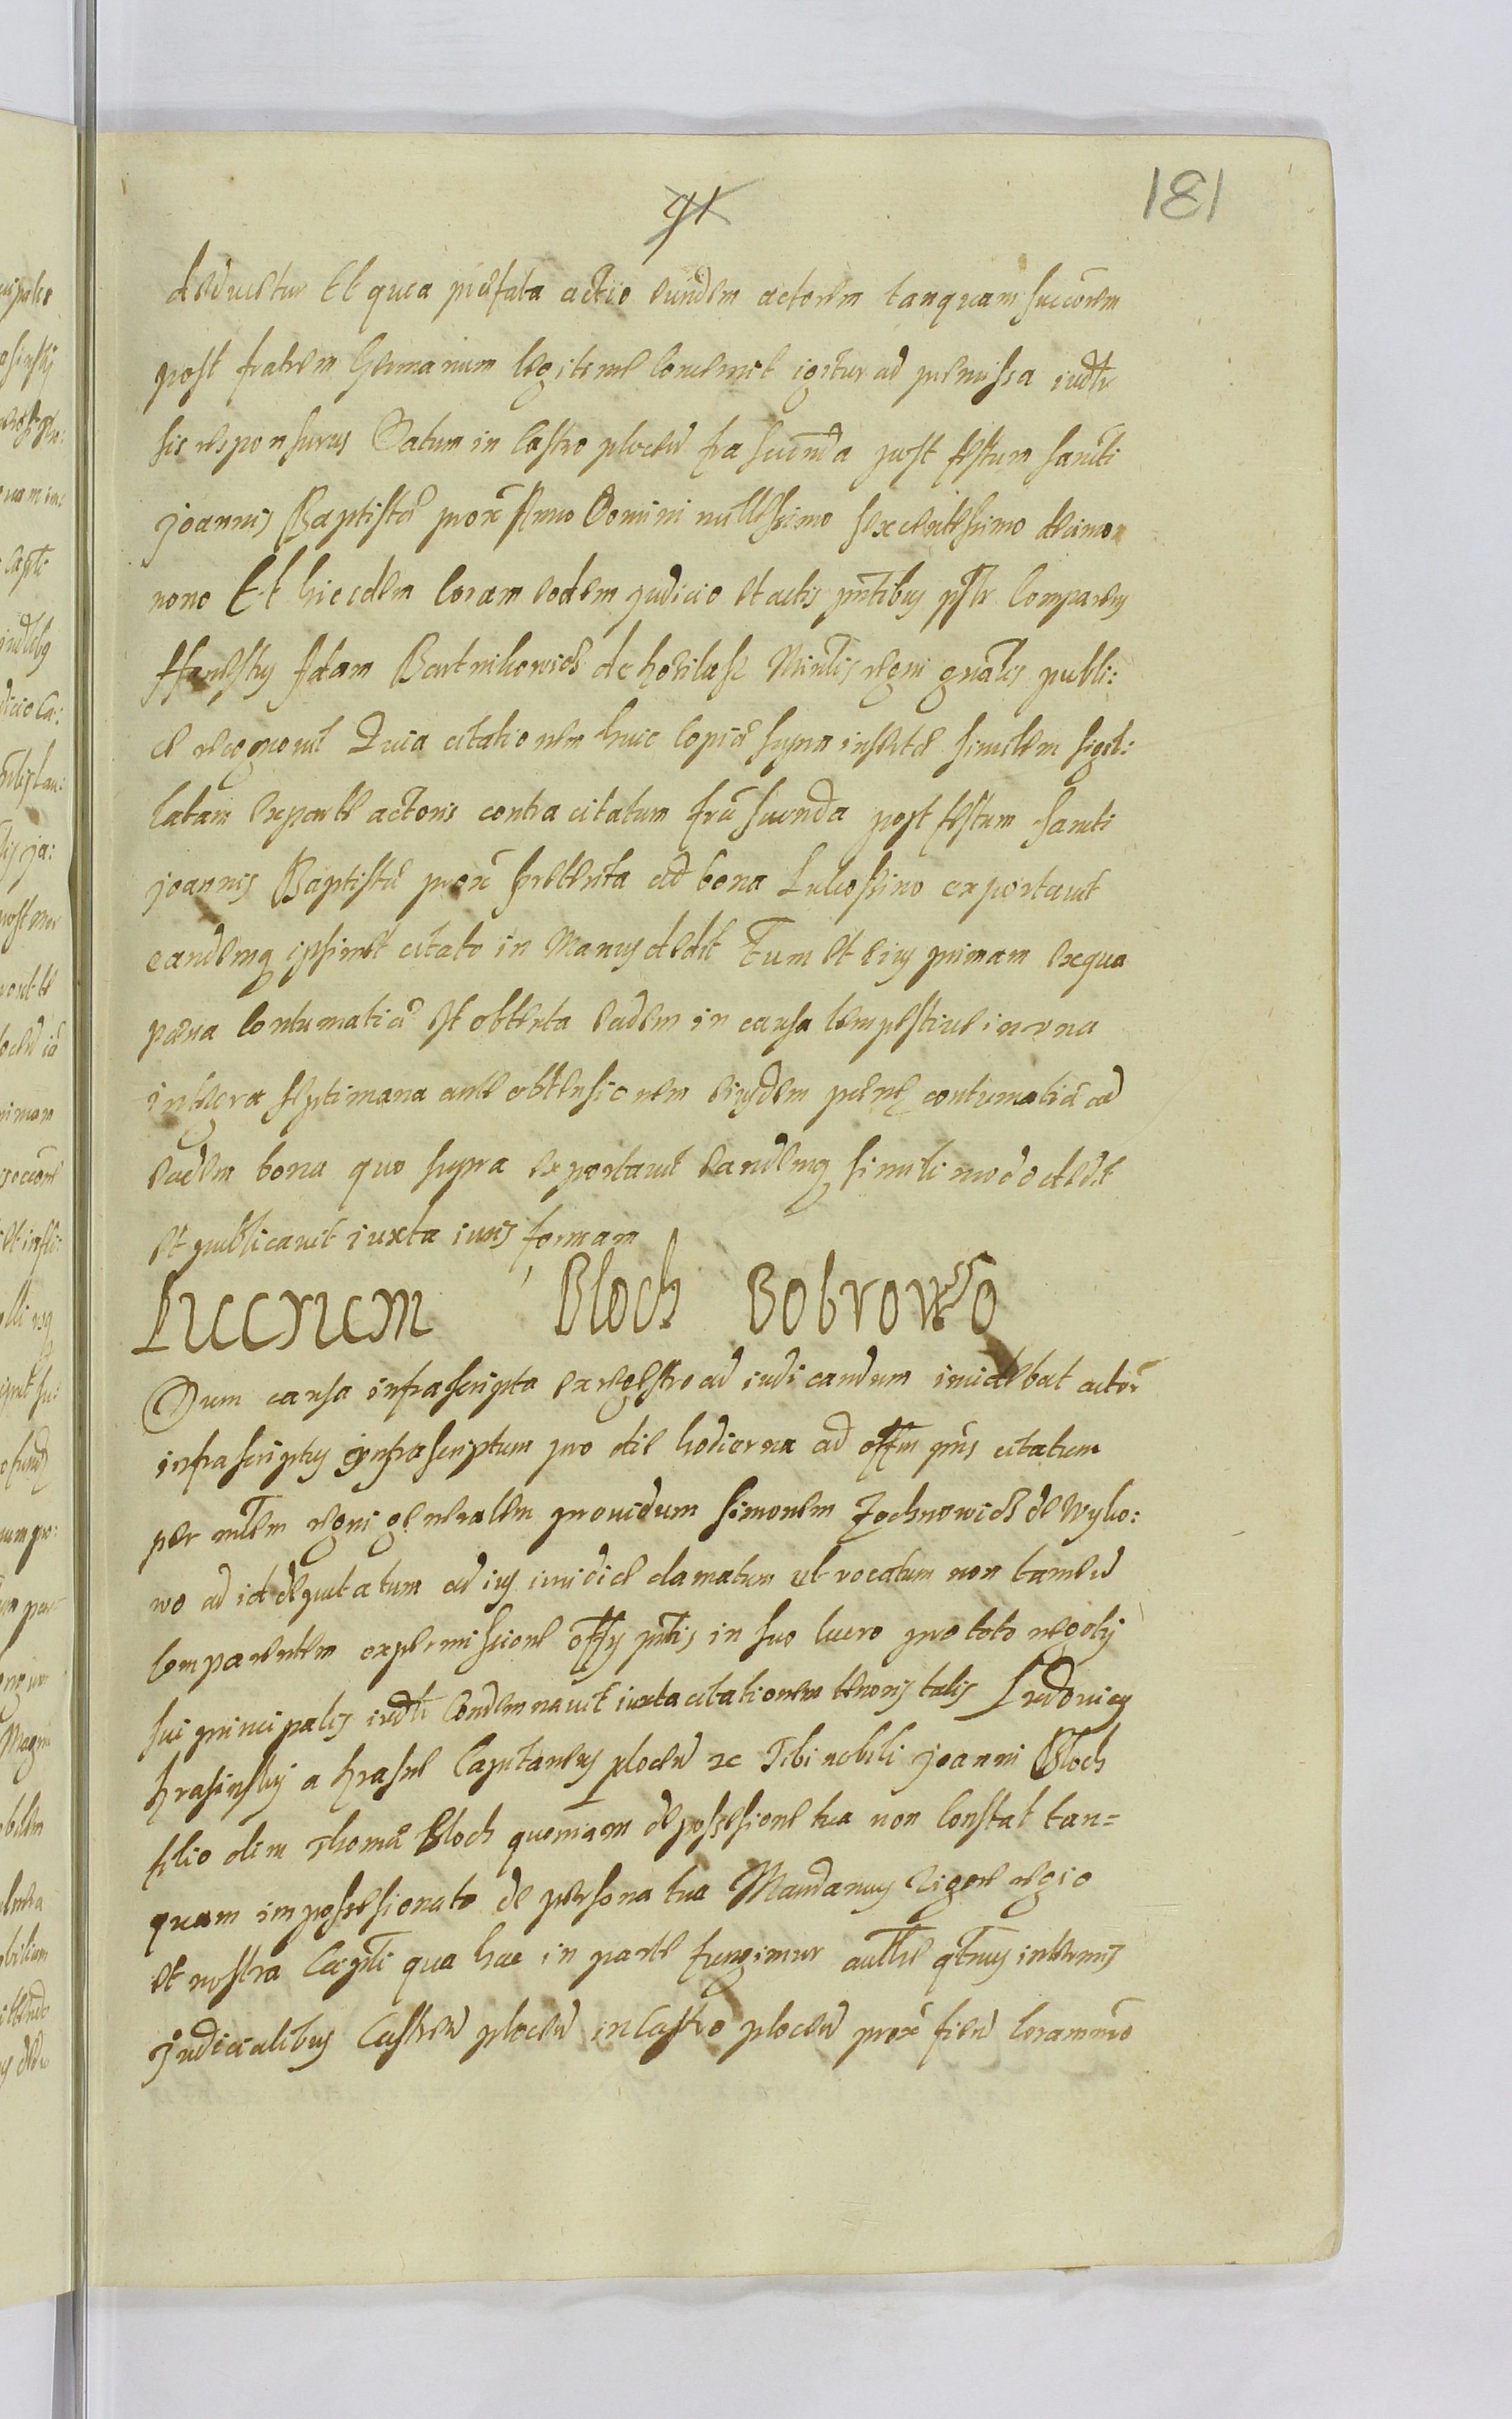 181
91
deducetur Et quia præfata actio eundem actorem tanquam succõrem
post fratrem Germanum legitime concernit igitur ad premissa iudtr
sis responsurus Datum in Castro plocen fria scunda post festum sancti
Joannis Baptistæ prox Anno Domini millesimo sexcentesimo decimo
nono Et hic idem coram eodem Judicio et actis pntibus psltr comparens
Honestus Adam Bartnikowicz de Minlis regni gnalis publi:
ce recognovit Quia citationem huic copiæ supra insertæ similem sigil:
latam ex parte actoris contra citatum fria scunda post festum sancti
Joannis Baptistæ prox preterita ad bona exportavit
eandemq ipsimet citato in Manus dedit Tum et eius primam ex qua
pæna contumatiæ est obtenta eadem in causa tempestive in una
integra septimana ante obtensionem eiusdem pænę contumatiæ ad
eadem bona quo supra exportavit eandemq simili modo dedit
et publicavit iuxta iuris formam
Lucrum Bloch Bobrowo
Dum causa infrascripta ex regestro ad iudicandum incidebat actor
infrascriptus infrascriptum pro die hodierna ad offm pns citatum
per mlem regni generalem providum Simonem Zochnowicz de Wyko:
wo ad id deputatum ad ius iuridice clamatum et vocatum non tamen
comparentem ex permissione offy pntis in suo lucro pro toto negoty
sui principalis iudtr Condemnavit iuxta citationem tenoris talis Ludovicus
Krasinsky a Krasne Capitaneus plocen zc Tibi nobili Joanni Bloch
filio olim Thomæ Bloch quoniam de possesione tua non constat tan=
quam impossesionato de persona tua Mandamus Vigore regio
et nostra Capti qua hac in parte fungimur autthe qtnus in terminis
Judicialibus Castren plocen in Castro plocen prox fien coram nro